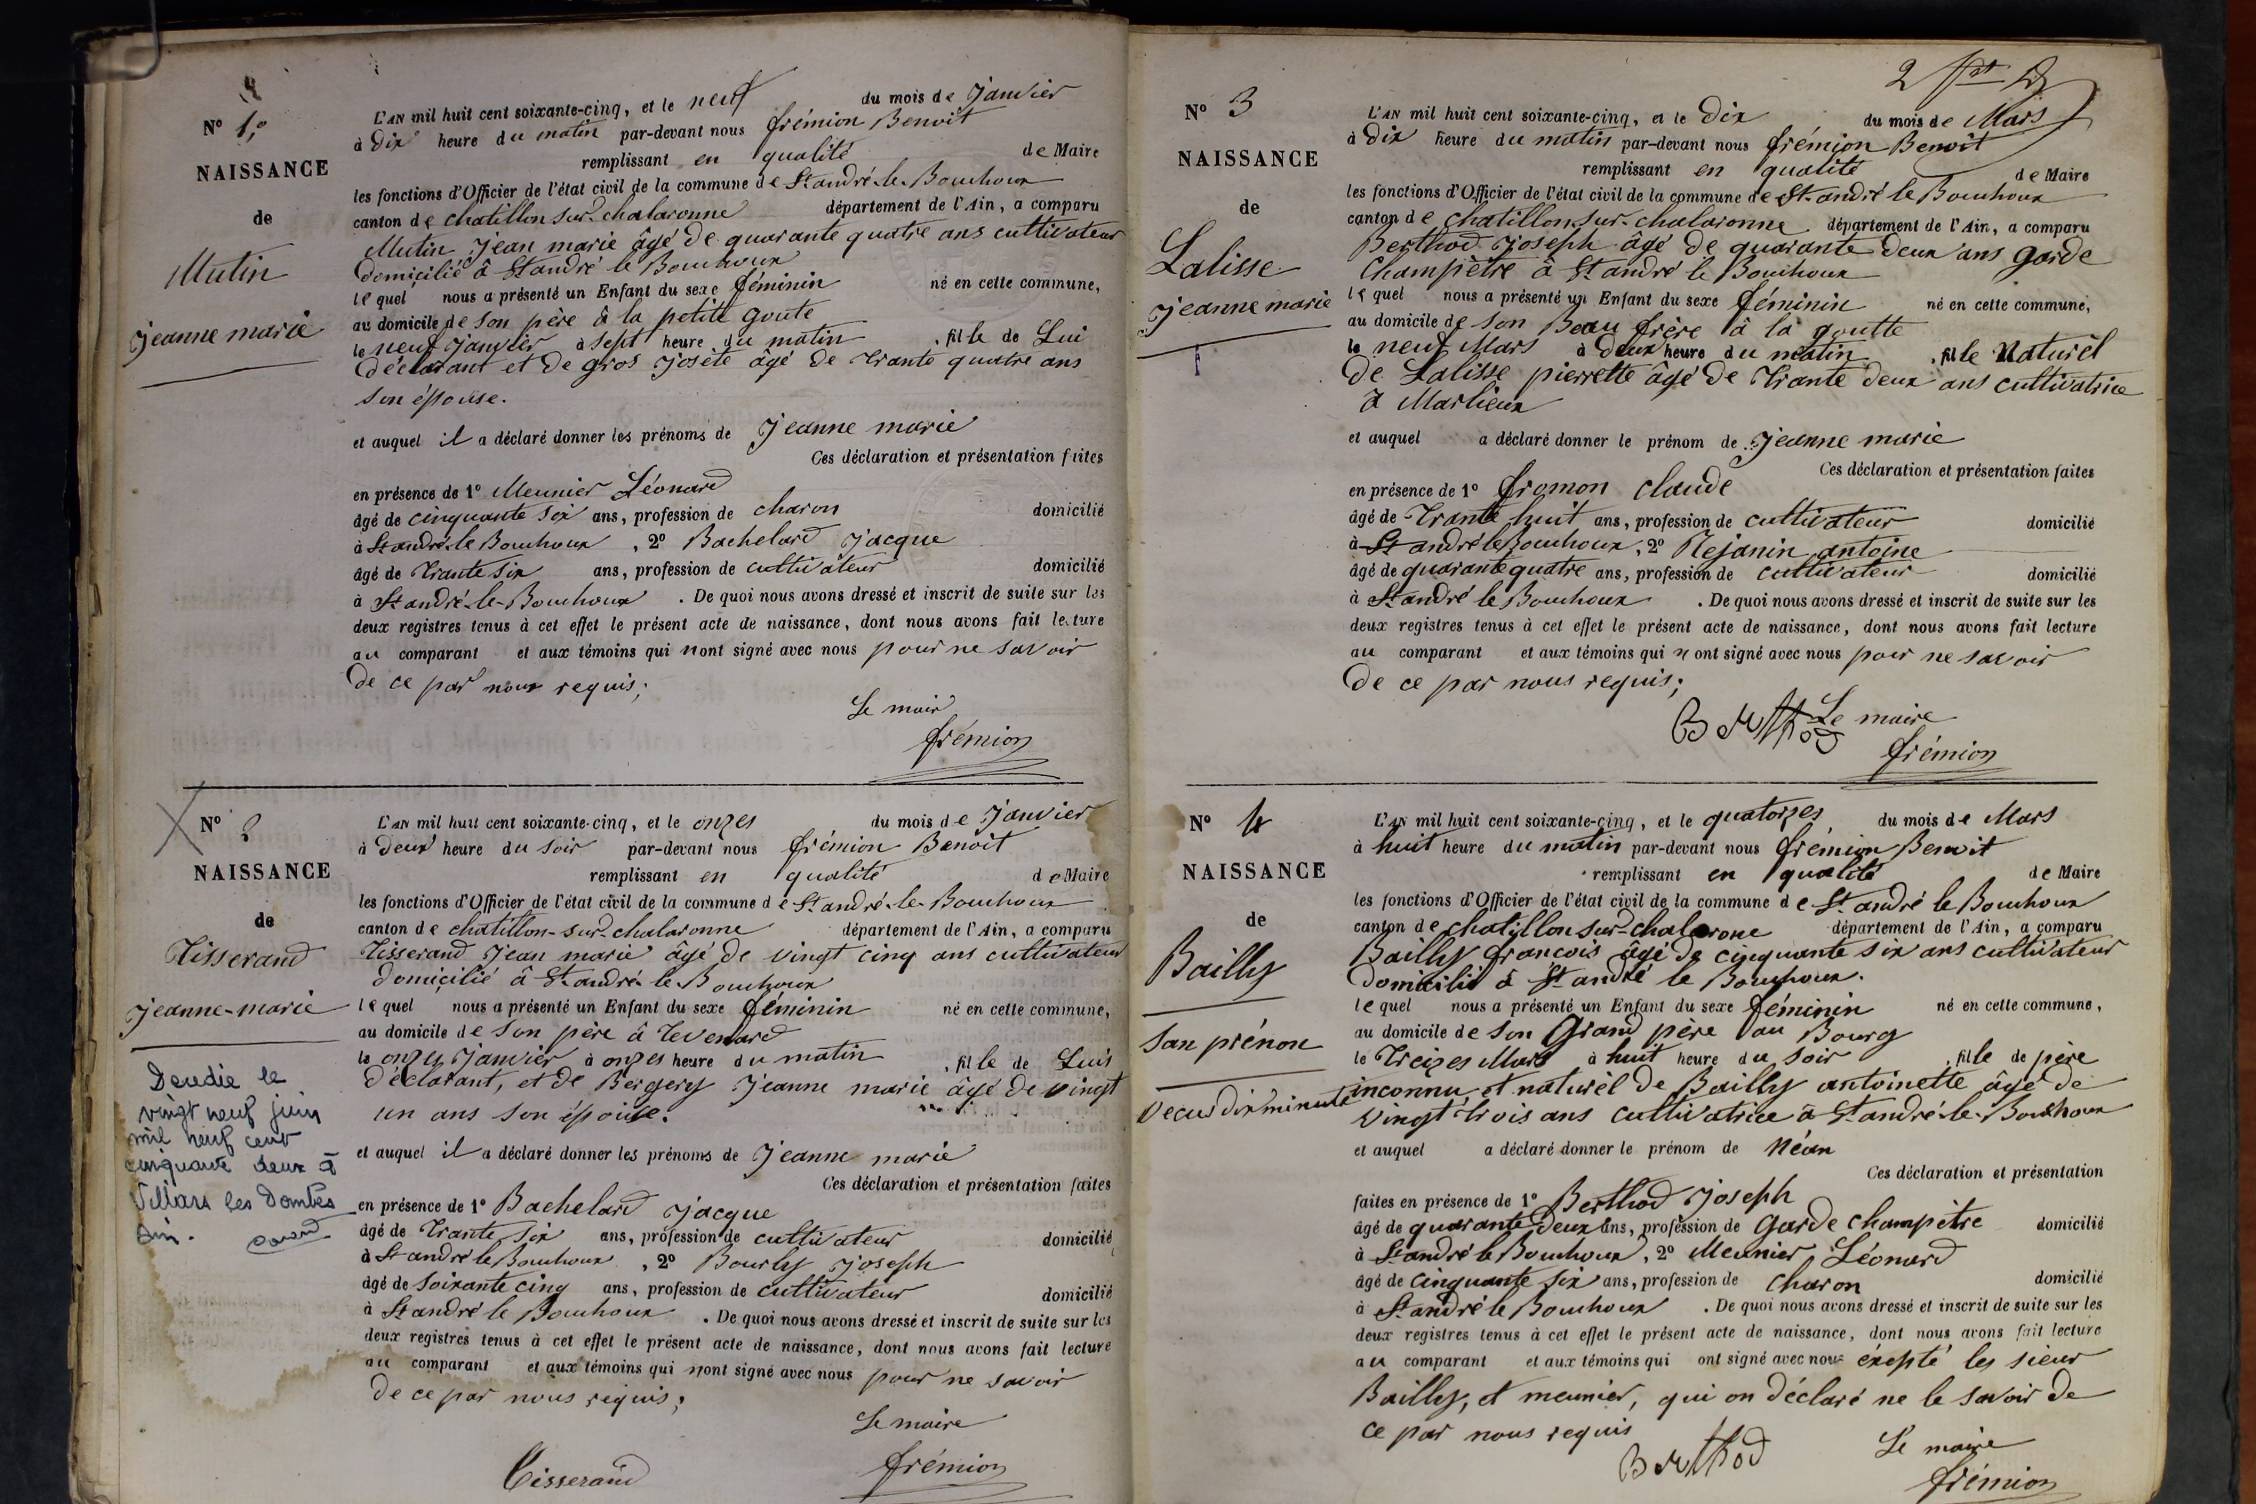 N° 1,°
NAISSANCE
de
Mutin
jeanne marie
L'AN mil huit cent soixante-cinq, et le neuf du mois de janvier
à dix heure du matin par-devant nous frémion Benoit
remplissant en qualité de Maire
les fonctions d'Officier de l'état civil de la commune de St andré-le-Bouchoux
canton de chatillon sur-chalaronne département de l'Ain, a comparu
Mutin jean marie âgé de quarante quatre ans cultivateur
domicilié à St andré le Bouchoux
lequel nous a présenté un Enfant du sexe féminin né en cette commune,
au domicile de son père à la petite goute
le neuf janvier à sept heure du matin, fille de Lui
déclarant et de gros josète âgé de trante quatre ans
son épouse.
et auquel il a déclaré donner les prénoms de jeanne marie
Ces déclaration et présentation faites
en présence de 1° Meunier Léonard
âgé de cinquante six ans, profession de charon domicilié
à St andré-le Bouchoux, 2° Bachelard jacque
âgé de trante six ans, profession de cultivateur domicilié
à St andré-le-Bouchoux. De quoi nous avons dressé et inscrit de suite sur les
deux registres tenus à cet effet le présent acte de naissance, dont nous avons fait lecture
au comparant et aux témoins qui nont signé avec nous pour ne savoir
de ce par nous requis;
Le mair
frémion
N° 2
NAISSANCE
de
Tisserand
jeanne-marie
Décédée le
vingt neuf juin
mil neuf cent
cinquante deux à
Villars les Dombes
Ain.
L'AN mil huit cent soixante-cinq, et le onzes du mois de janvier
à deux heure du soir par-devant nous frémion Benoit
remplissant en qualité de Maire
les fonctions d'Officier de l'état civil de la commune de St andré-le-Bouchoux
canton de chatillon-sur-chalaronne département de l'Ain, a comparu
Tisserand jean marie âgé de vingt cinq ans cultivateur
domicilié à St andré-le-Bouchoux
lequel nous a présenté un Enfant du sexe féminin né en cette commune,
au domicile de son père à tevenard
le onzes janvier à onzes heure du matin, fille de Lui
déclarant, et de Bergery jeanne marie âgé de vingt
un ans son épouse.
et auquel il a déclaré donner les prénoms de jeanne marie
Ces déclaration et présentation faites
en présence de 1° Bachelard jacque
âgé de trante six ans, profession de cultivateur domicilié
à St andré le Bouchoux, 2° Bourly joseph
âgé de soixante cinq ans, profession de cultivateur domicilié
à St andré le Bouchoux. De quoi nous avons dressé et inscrit de suite sur les
deux registres tenus à cet effet le présent acte de naissance, dont nous avons fait lecture
au comparant et aux témoins qui nont signé avec nous pour ne savoir
de ce par nous requis;
Le maire
Tisserand frémion
2
N° 3
NAISSANCE
de
Lalisse
jeanne marie
L'AN mil huit cent soixante-cinq, et le dix du mois de Mars
à dix heure du matin par-devant nous frémion Benoit
remplissant en qualité de Maire
les fonctions d'Officier de l'état civil de la commune de St andré le Bouchoux
canton de chatillon-sur-chalaronne département de l'Ain, a comparu
Berthod joseph âgé de quarante deux ans garde
champêtre à St andré le Bouchoux
lequel nous a présenté un Enfant du sexe féminin né en cette commune,
au domicile de son Beau frère à la goutte
le neuf Mars à deux heure du matin, fille Naturèl
de Lalisse pierrette âgé de trante deux ans cultivatrice
à Marlieux
et auquel a déclaré donner le prénom de jeanne marie
Ces déclaration et présentation faites
en présence de 1° fromon claude
âgé de trante huit ans, profession de cultivateur domicilié
à St andré le Bouchoux, 2° Rejanin antoine
âgé de quarante quatre ans, profession de cultivateur domicilié
à St andré le Bouchoux. De quoi nous avons dressé et inscrit de suite sur les
deux registres tenus à cet effet le présent acte de naissance, dont nous avons fait lecture
au comparant et aux témoins qui n ont signé avec nous pour ne savoir
de ce par nous requis;
Berthod Le maire
frémion
N° 4
NAISSANCE
de
Bailly
san prénon
vecu dix minute
L'AN mil huit cent soixante-cinq, et le quatorzes du mois de Mars
à huit heure du matin par-devant nous frémion Benoit
remplissant en qualité de Maire
les fonctions d'Officier de l'état civil de la commune de St andré le Bouchoux
canton de chatillon sur-chalarone département de l'Ain, a comparu
Bailly francois âgé de cinquante six ans cultivateur
domicilié à St andré le Bouchoux.
lequel nous a présenté un Enfant du sexe féminin né en cette commune,
au domicile de son Grand père au Bourg
le treizes Mars à huit heure du soir, fille de père
inconnu et naturèl de Bailly antoinette âgé de
vingt trois ans cultivatrice à St andré-le-Bouchoux
et auquel a déclaré donner le prénom de néan
Ces déclaration et présentation
faites en présence de 1° Berthod joseph
âgé de quarante deux ans, profession de garde champêtre domicilié
à St andré le Bouchoux, 2° Meunier Léonard
âgé de cinquante six ans, profession de charon domicilié
à St andré le Bouchoux. De quoi nous avons dressé et inscrit de suite sur les
deux registres tenus à cet effet le présent acte de naissance, dont nous avons fait lecture
au comparant et aux témoins qui ont signé avec nous éxepté les sieur
Bailly, et meunier, qui on déclaré ne le savoir de
ce par nous requis
Berthod Le maire
frémion